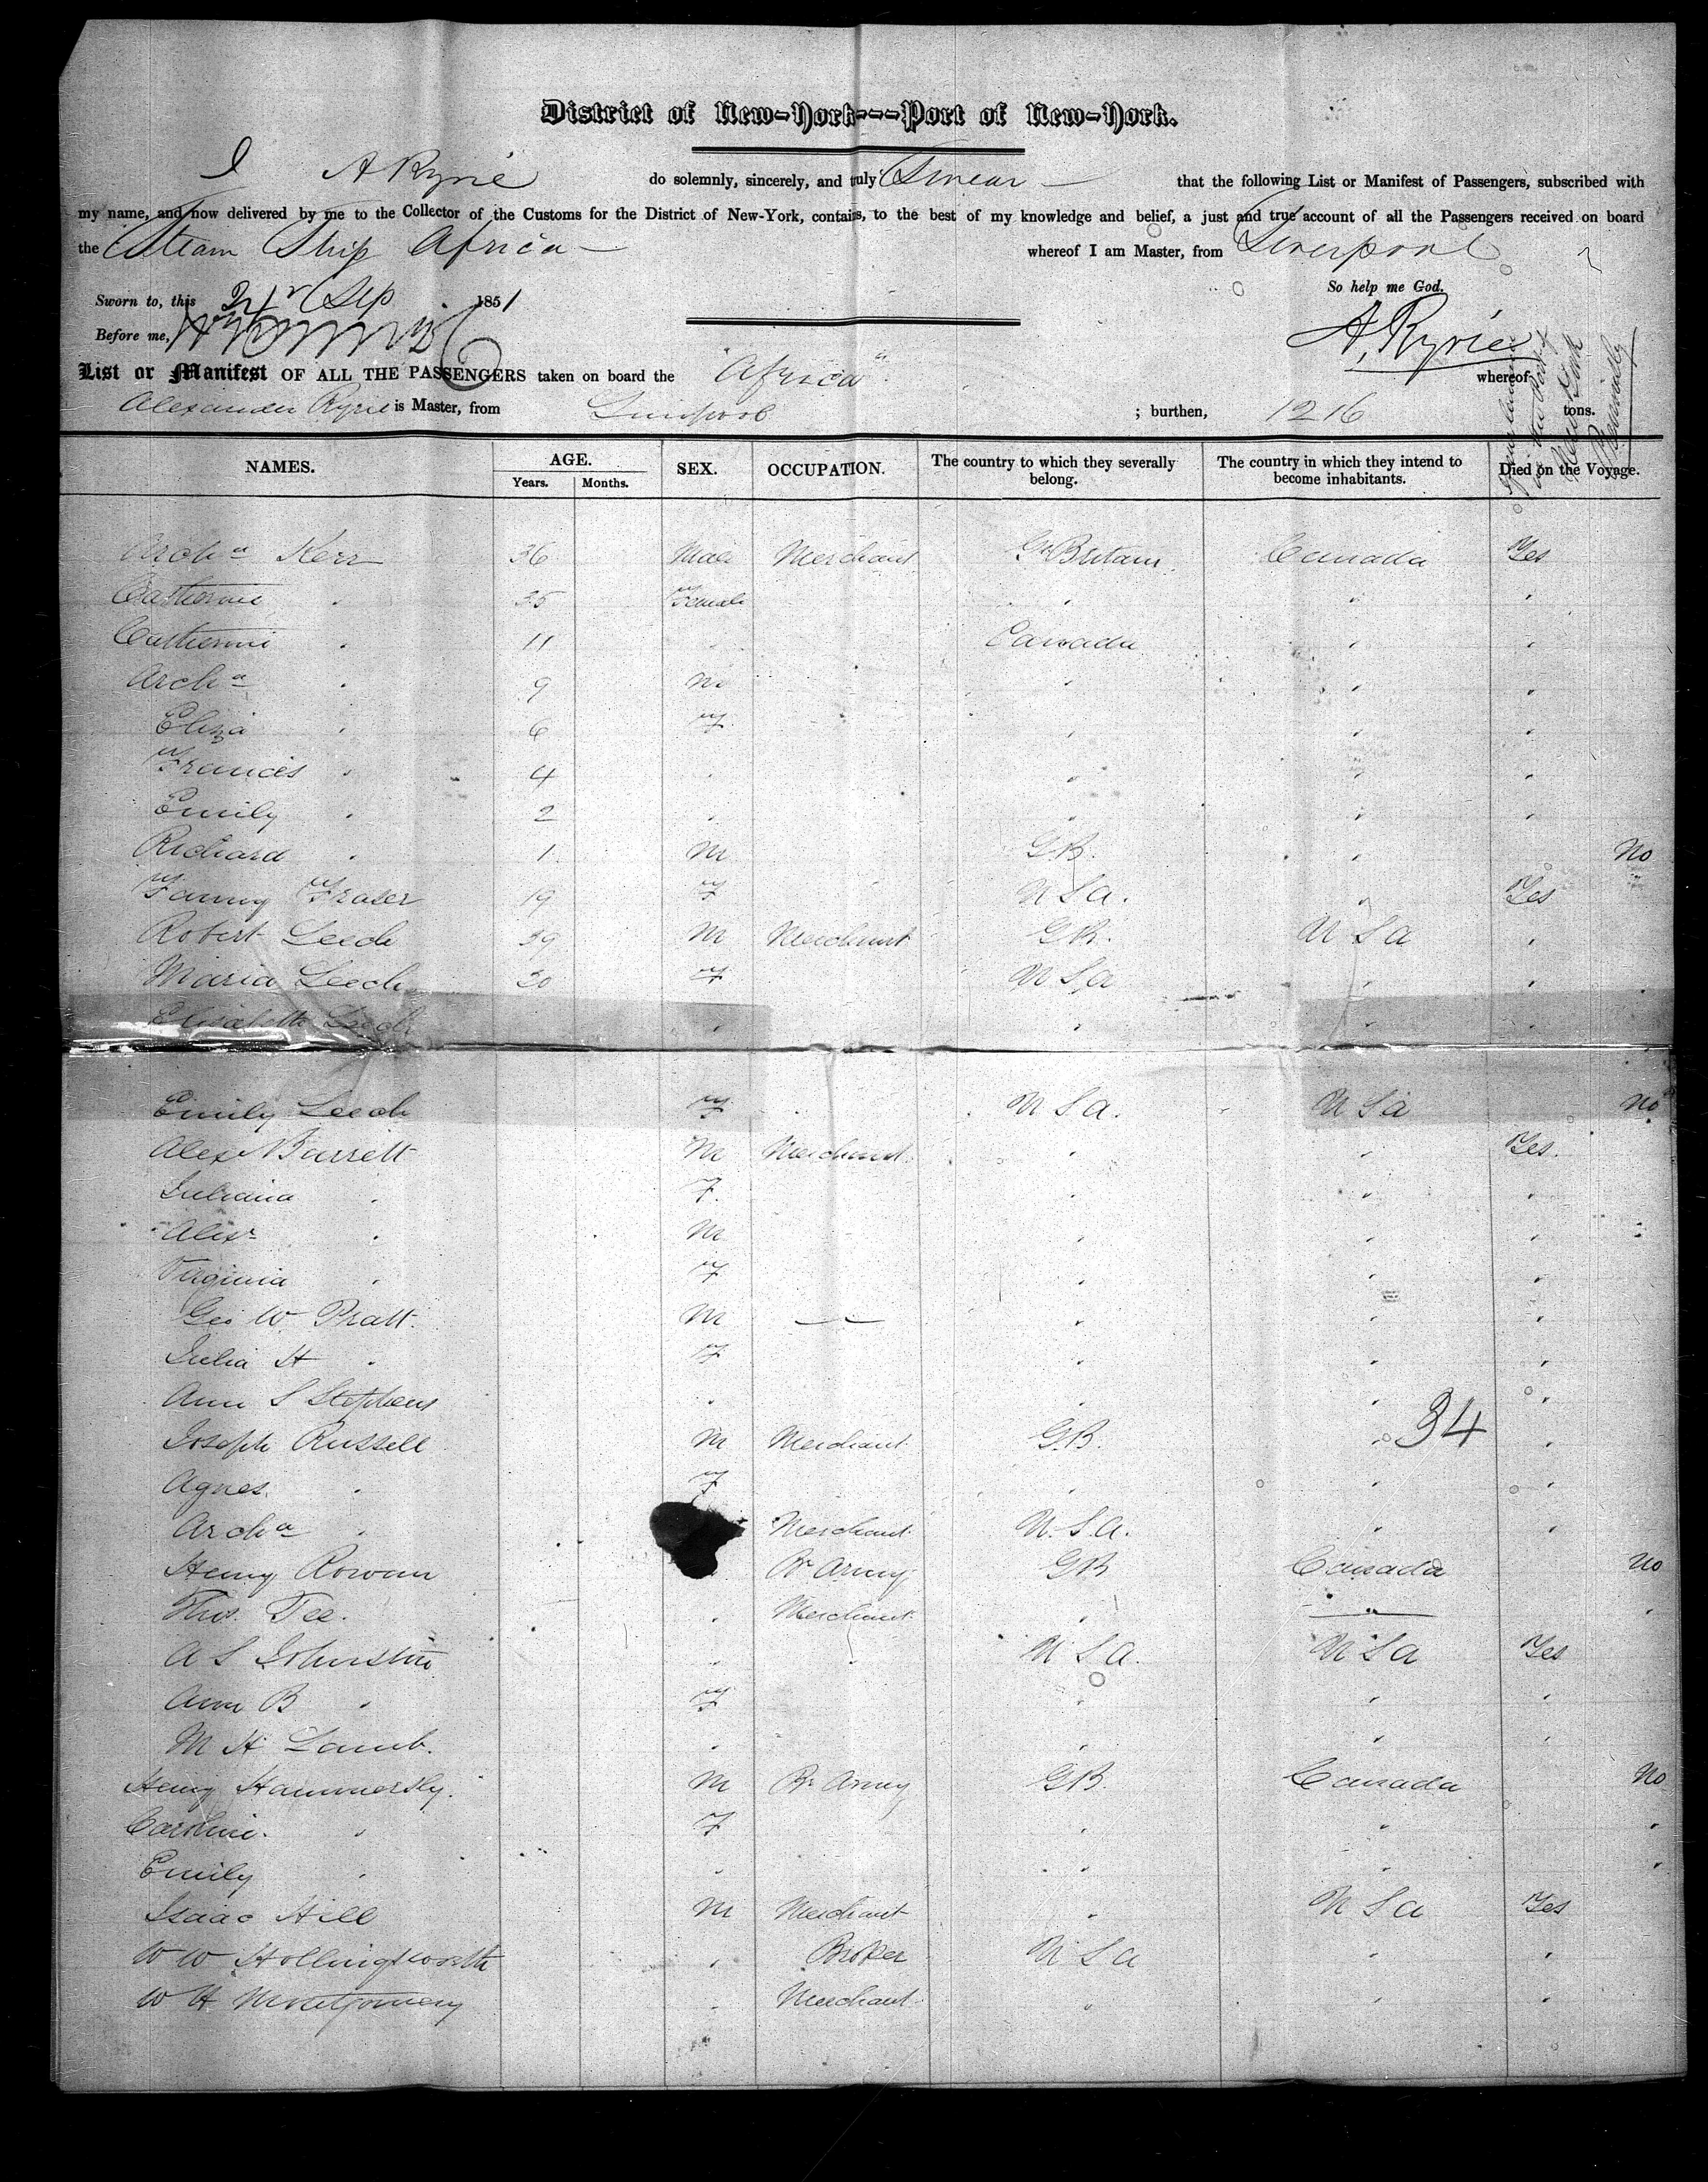 District of New-York---Port of New-York.
I A Ryrie do solemnly, sincerely, and truly Swear that the following List or Manifest of Passengers, subscribed with
my name, and now delivered by me to the Collector of the Customs for the District of New-York, contains, to the best of my knowledge and belief, a just and true account of all the Passengers received on board
the Steam Ship Africa whereof I am Master, from Liverpool
So help me God.
Sworn to, this Sep 1851
Before me, A. Ryrie
List or Manifest OF ALL THE PASSENGERS taken on board the "Africa" whereof
Alexander Ryrie is Master, from Liverpool ; burthen, 1216 tons.
NAMES. AGE. SEX. OCCUPATION. The country to which they severally belong. The country in which they intend to become inhabitants. Died on the Voyage.
Years. Months.
Archd Kerr 36 Male Merchant Gt Britain Canada Yes
Catherine " 35 Female " " "
Catherine " 11 " Canada " "
Archd " 9 M " " "
Eliza " 6 F " " "
Frances " 4 " " " "
Emily " 2 " " " "
Richard " 1 M G.B. " No
Fanny Fraser 19 F U S a. " Yes
Robert Leech 39 M Merchant G.B. U S a "
Maria Leech 30 F U S a " "
Elizabeth Leech " " " "
Emily Leech F U S a. U S a No
Alex Barrett M Merchant " " Yes.
Juliana " F. " " "
Alexr " M " " "
Virginia " F " " "
Geo W. Pratt. M — " " "
Julia H " F " " "
Ann S Stephens " " " "
34
Joseph Russell M Merchant G.B. " "
Agnes. " F " " "
Archd " Merchant U. S. a. " "
Henry Rowan Br Army GB Canada No
Thos. Tee. " Merchant " " "
A S Johnston " " U S a. U S a Yes
Ann B " F " " "
M H Lamb. " " " "
Henry Hammersly. M Br Army GB. Canada No
Caroline. " F " " "
Emily " " " " "
Isaac Hill M Merchant " U S a Yes
W W Hollingsworth " Broker U S a " "
W H Montgomery " Merchant " " "